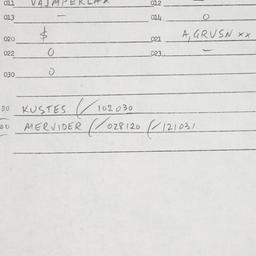 011 VAJMPERLAX 012 —
013 — 014 O
020 $ 021 A, GRVSN xx
022 O 023 —
030 O
00 KUSTES (/ 102030
00 MERVIDER (/ 028120 (/ 121031